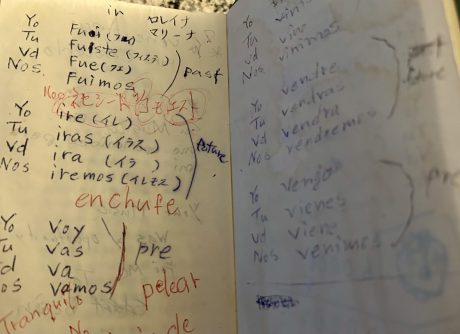 ir
ロレイナ
マリーナ
Yo Fui (フイ)
Tu Fuiste (フイステ)
Vd Fue (フエ)
Nos. Fuimos
past
Yo ire (イレ)
Tu iras (イラス)
Vd ira (イラ)
Nos iremos (イレモス)
future
enchufe
Yo voy
Tu vas
d va
os vamos
pre
pelear
Tranquilo
No
de
Yo
Tu
Vd
Nos vinimos
past
Yo vendre
Tu vendras
Vd vendra
Nos vendremos
future
Yo vengo
Tu vienes
Vd viene
Nos venimos
pre